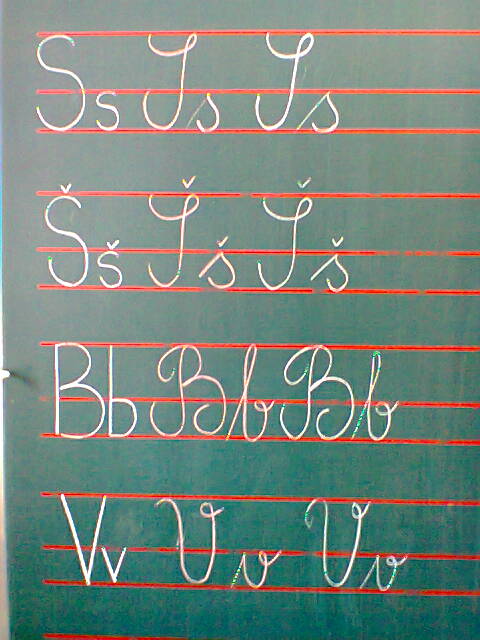 Ss Ss Ss
Šš Šš Šš
Bb Bb Bb
Vv Vv Vv